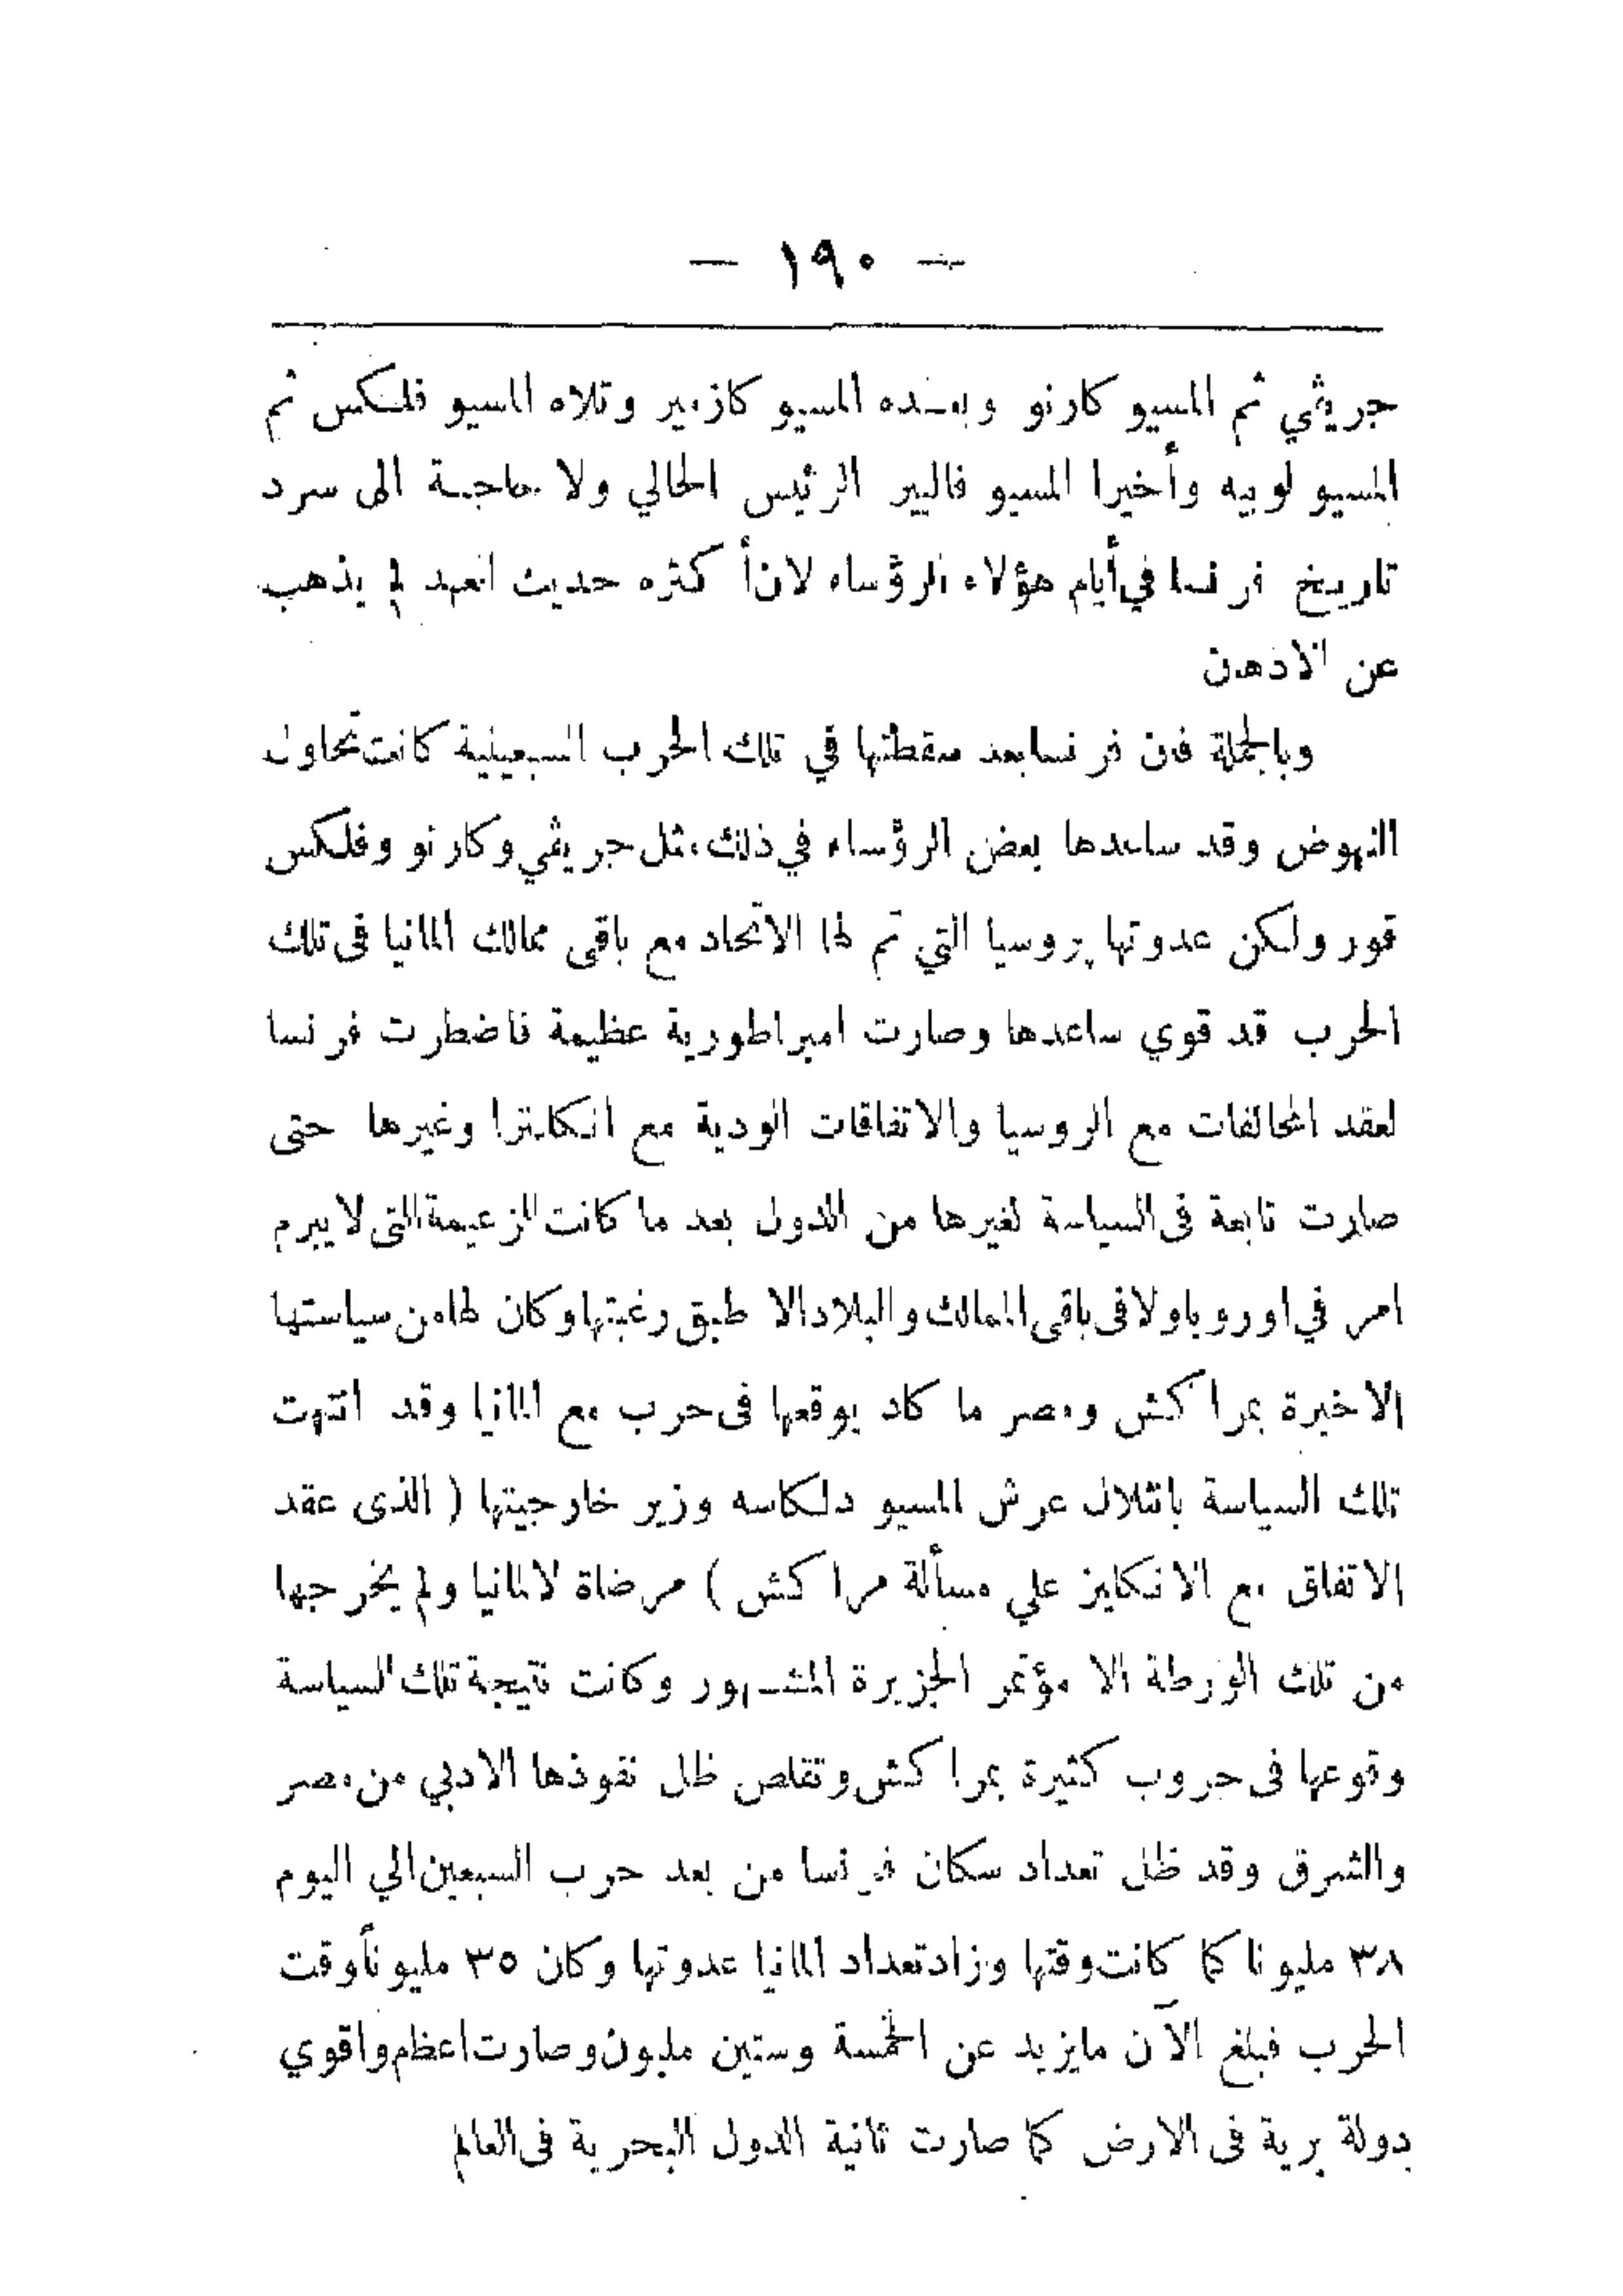 — ١٩٠ —
جريڤي ثم المسيو كارنو وبعده المسيو كازمير وتلاه المسيو فلكس ثم
المسيو لوبيه وأخيرا المسيو فاليير الرئيس الحالي ولا حاجة الى سرد
تاريخ فرنسا في أيام هؤلاء الرؤساء لان أكثره حديث العهد لم يذهب
عن الاذهن
وبالجملة فان فرنسا بعد سقطتها في تلك الحرب السبعينية كانت تحاول
النهوض وقد ساعدها بعض الرؤساء في ذلك مثل جريڤي وكارنو وفلكس
فور ولكن عدوتها پروسيا التي تم لها الاتحاد مع باقى ممالك المانيا فى تلك
الحرب قد قوي ساعدها وصارت امبراطورية عظيمة فاضطرت فرنسا
لعقد المحالفات مع الروسيا والاتفاقات الودية مع انكلترا وغيرها حتى
صارت تابعة فى السياسة لغيرها من الدول بعد ما كانت الزعيمة التى لا يبرم
امر في اوروبا ولا فى باقى الممالك والبلاد الا طبق رغبتها وكان لها من سياستها
الاخيرة بمراكش ومصر ما كاد يوقعها فى حرب مع المانيا وقد انتهت
تلك السياسة بانثلال عرش المسيو دلكاسه وزير خارجيتها ( الذى عقد
الاتفاق مع الانكليز علي مسألة مراكش ) مرضاة لالمانيا ولم يخرجها
من تلك الورطة الا مؤتمر الجزيرة المشهور وكانت نتيجة تلك السياسة
وقوعها فى حروب كثيرة بمراكش وتقلص ظل نفوذها الادبي من مصر
والشرق وقد ظل تعداد سكان فرنسا من بعد حرب السبعين الي اليوم
٣٨ مليونا كما كانت وقتها وزاد تعداد المانيا عدوتها وكان ٣٥ مليوناً وقت
الحرب فبلغ الآن مايزيد عن الخمسة وستين مليون وصارت اعظم واقوي
دولة برية فى الارض كما صارت ثانية الدول البحرية فى العالم